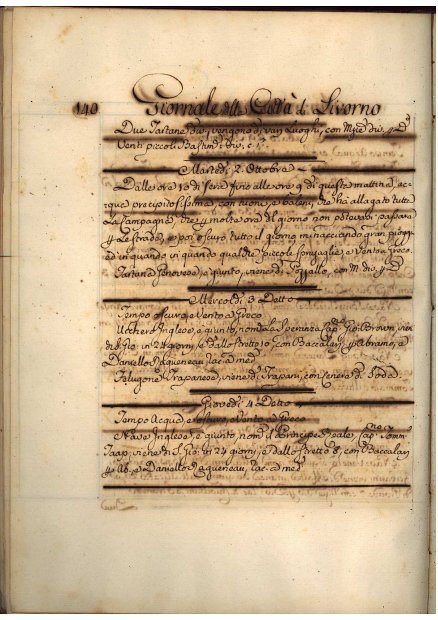 140 Giornale della Città di Livorno
Due Tartane div. vengono di vari Luoghi, con M. div.
Venti piccoli Bastim. div.
Martedì 2. Ottobre
Dalle ore 10 di sera fino alle ore 9 di questa mattina, ac-
que precipitosissime con tuoni, e baleni, che ha allagato tutte
Le Campagne, che molte ore di giorno non potevasi passare
Le Strade, e poi oscuro tutto il giorno minacciando gran piogg
ed in quando in quando qualche piccole spruzzaglie, e Vento a Greco.
Tartana Genovese, e giunto, viene di Pozzallo, con M. div.
Mercoldì 3 Detto
Tempo oscuro, e Vento a Greco
Ucchero Inglese, e giunto, nom. La Speranza Cap. Gio: Brown, vien
di S. Gio: in 24 giorni, e Dallo Stretto 10 con Baccalari Abramo, e
Daniello Laqueneau rac. a med.
Felugone Trapanese, viene di Trapani, con Cenere di Soda
Giovedì 4 Detto
Tempo Acqua, e oscuro, e Vento a Greco
Nave Inglese, e giunto, nom. il Principe Reale, Cap.
viene di S. Gio: in 24 giorni, e dallo Stretto 8, con Baccalari
Ab. e Daniello Laqueneau, rac. a med.